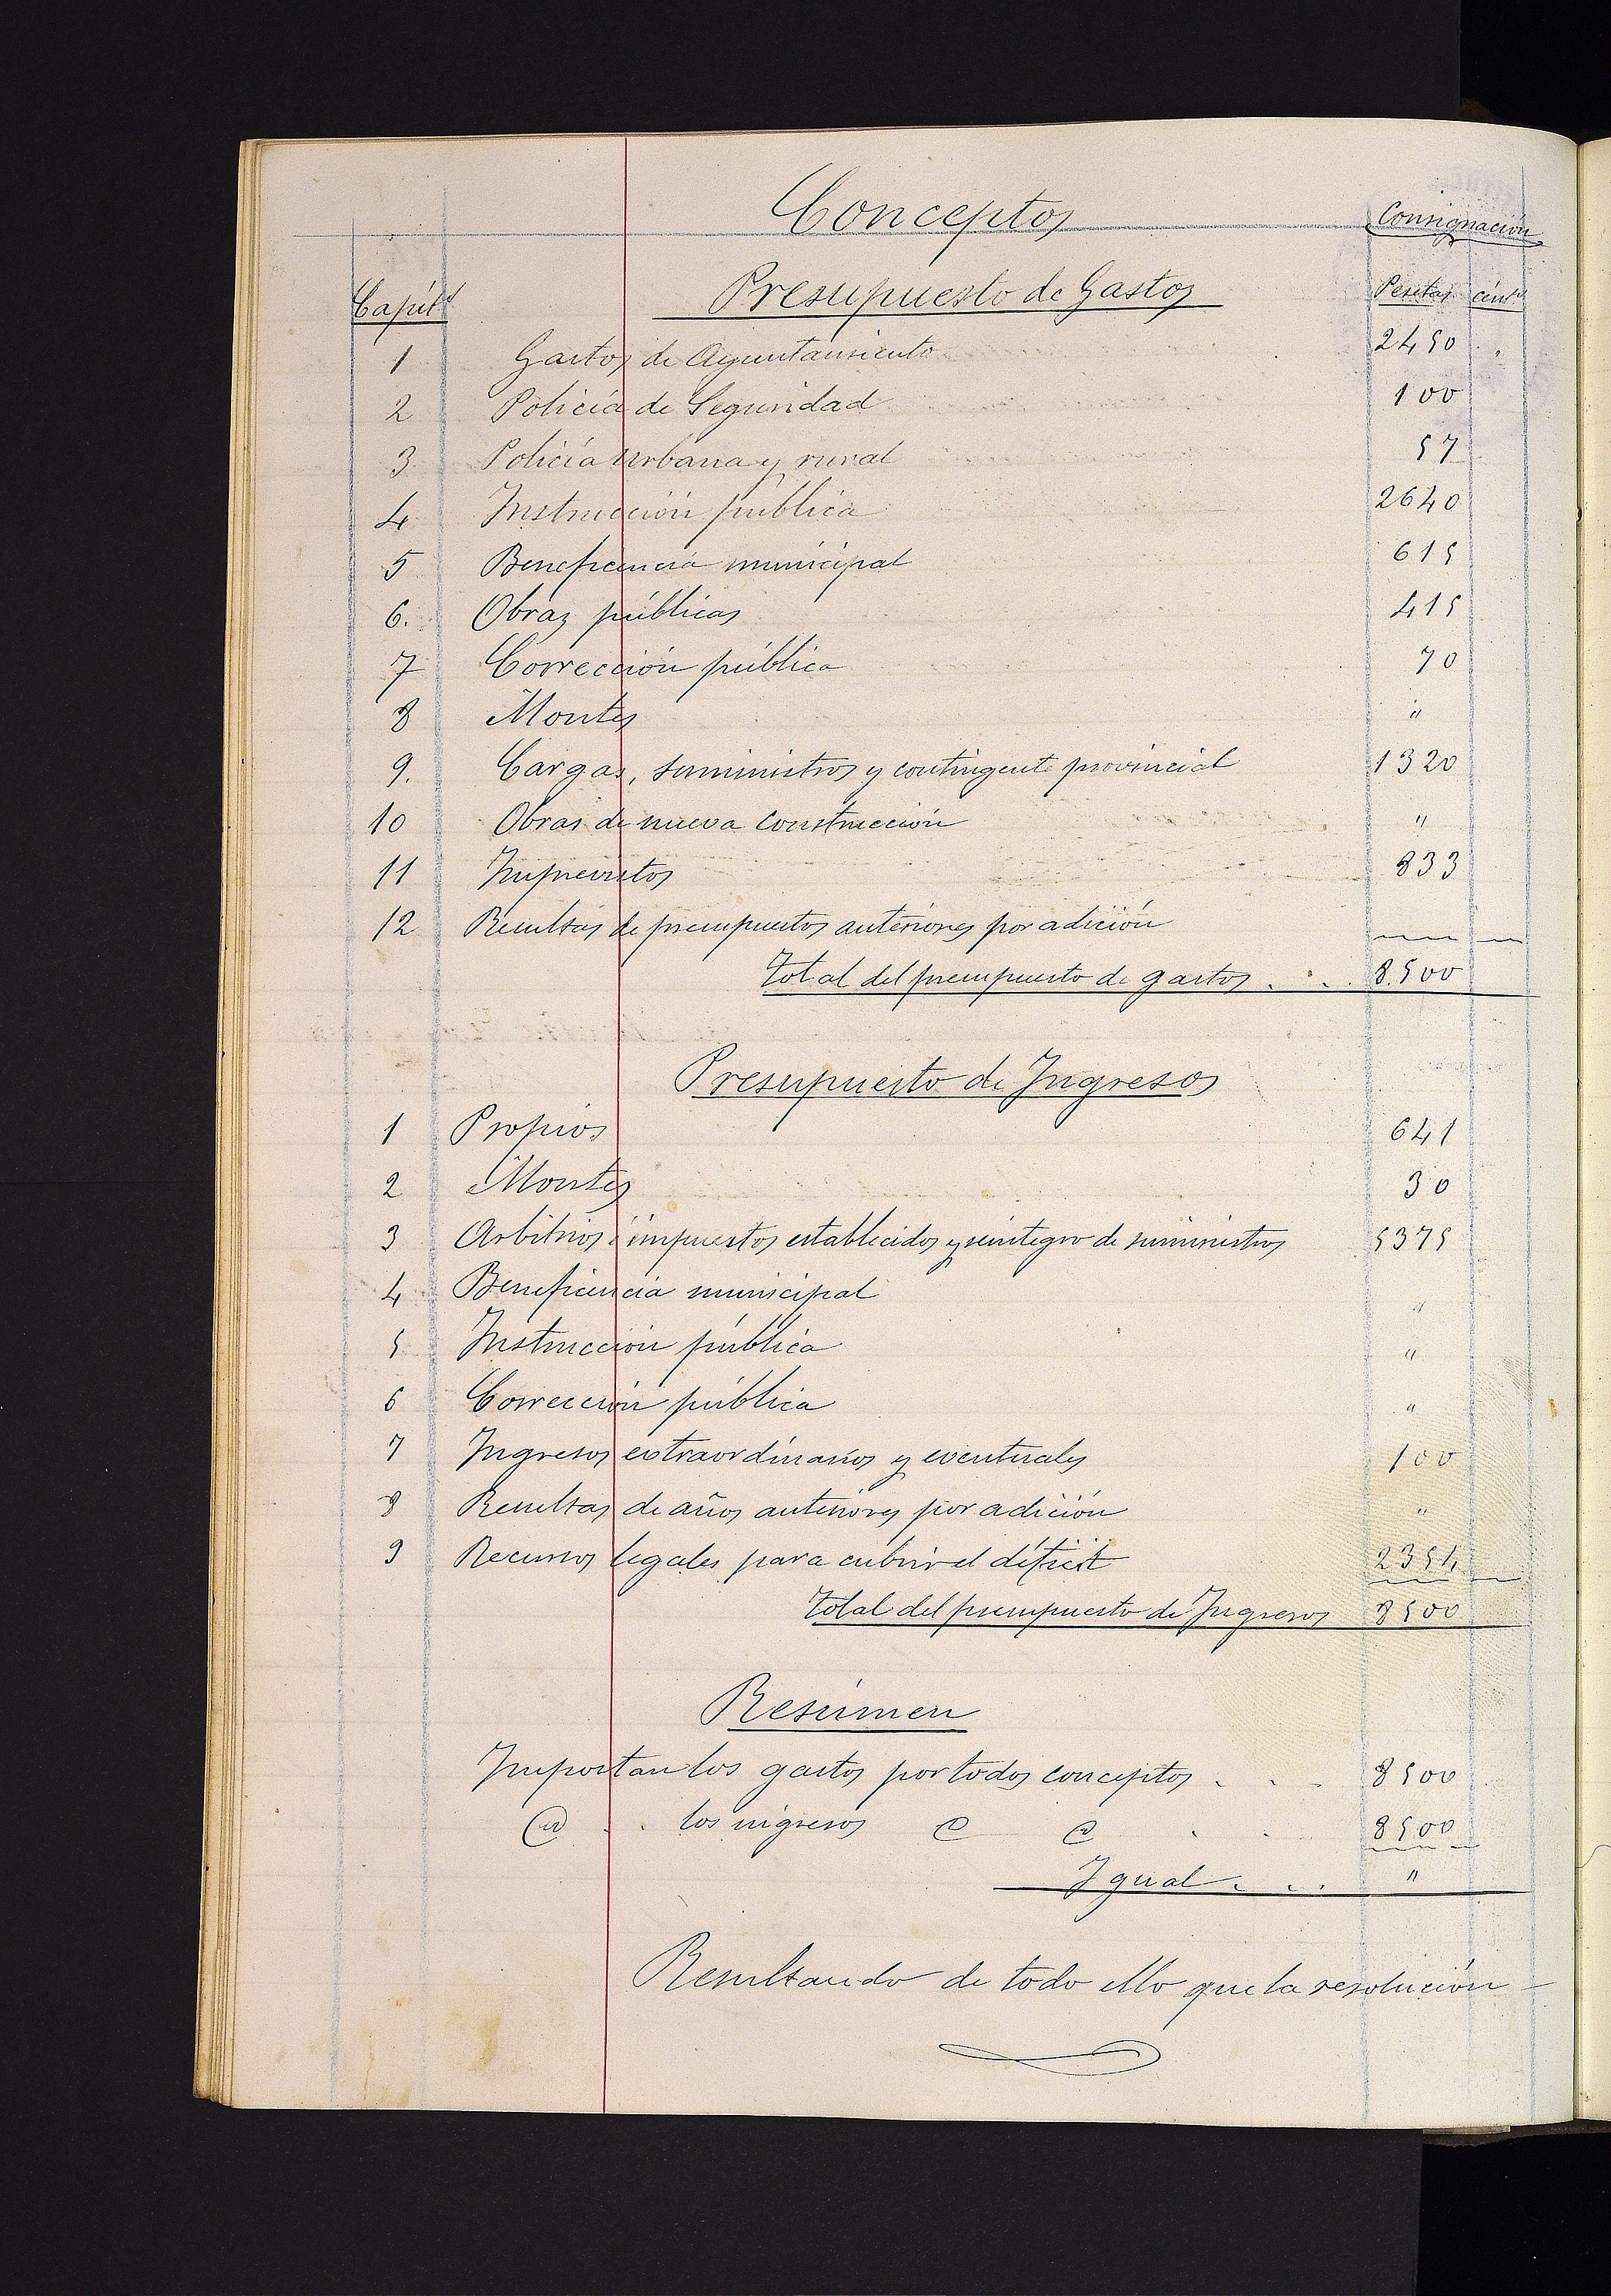 Conceptos Consignación
Capít.s Presupuesto de Gastos Pesetas cént.s
1 Gastos de Ayuntamiento 2450 "
2 Policía de Seguridad 100
3 Policía Urbana y rural 57
4 Instrucción pública 2640
5 Beneficencia municipal 615
6. Obras públicas 415
7 Corrección pública 70
8 Montes "
9. Cargas, suministros y contingente provincial 1320
10 Obras de nueva construcción "
11 Imprevistos 833
12 Resultas de presupuestos anteriores por adición
total del presupuesto de gastos . . . 8.500
Presupuesto de Ingresos
1 Propios 641
2 Montes 30
3 Arbitrios é impuestos establecidos y reintegro de suministros 5375
4 Beneficencia municipal "
5 Instrucción pública "
6 Corrección pública "
7 Ingresos extraordinarios y eventuales 100
8 Resultas de años anteriores por adición "
9 Recursos legales para cubrir el déficit 2354
total del presupuesto de Ingresos 8500
Resúmen
Importan los gastos por todos conceptos . . . 8500
los ingresos 8500
Igual . . . "
Resultando de todo ello que la resolución